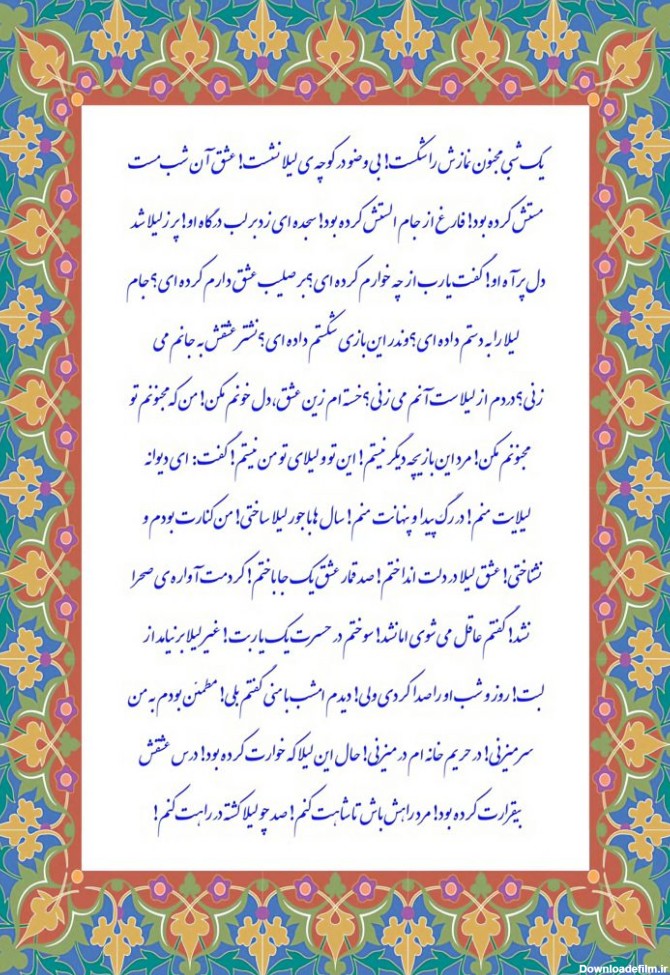 یک شبی مجنون نمازش را شکست! بی وضو در کوچه ی لیلا نشست! عشق آن شب مست
مستش کرده بود! فارغ از جام الستش کرده بود! سجده ای زد بر لب درگاه او! پر ز لیلا شد
دل پر آه او! گفت یارب از چه خوارم کرده ای؟ بر صلیب عشق دارم کرده ای؟ جام
لیلا را به دستم داده ای؟ وندر این بازی شکستم داده ای؟ نشتر عشقش به جانم می
زنی؟ دردم از لیلاست آنم می زنی؟ خسته ام زین عشق، دل خونم مکن! من که مجنونم تو
مجنونم مکن! مرد این بازیچه دیگر نیستم! این تو و لیلای تو من نیستم! گفت: ای دیوانه
لیلایت منم! در رگ پیدا و پنهانت منم! سال ها با جور لیلا ساختی! من کنارت بودم و
نشناختی! عشق لیلا در دلت انداختم! صد قمار عشق یک جا باختم! کردمت آواره ی صحرا
نشد! گفتم عاقل می شوی اما نشد! سوختم در حسرت یک یا ربت! غیر لیلا بر نیامد از
لبت! روز و شب او را صدا کردی ولی! دیدم امشب با منی گفتم بلی! مطمئن بودم به من
سر میزنی! در حریم خانه ام در میزنی! حال این لیلا که خوارت کرده بود! درس عشقش
بیقرارت کرده بود! مرد راهش باش تا شاهت کنم! صد چو لیلا کشته در راهت کنم!
Downloadefilm.ir